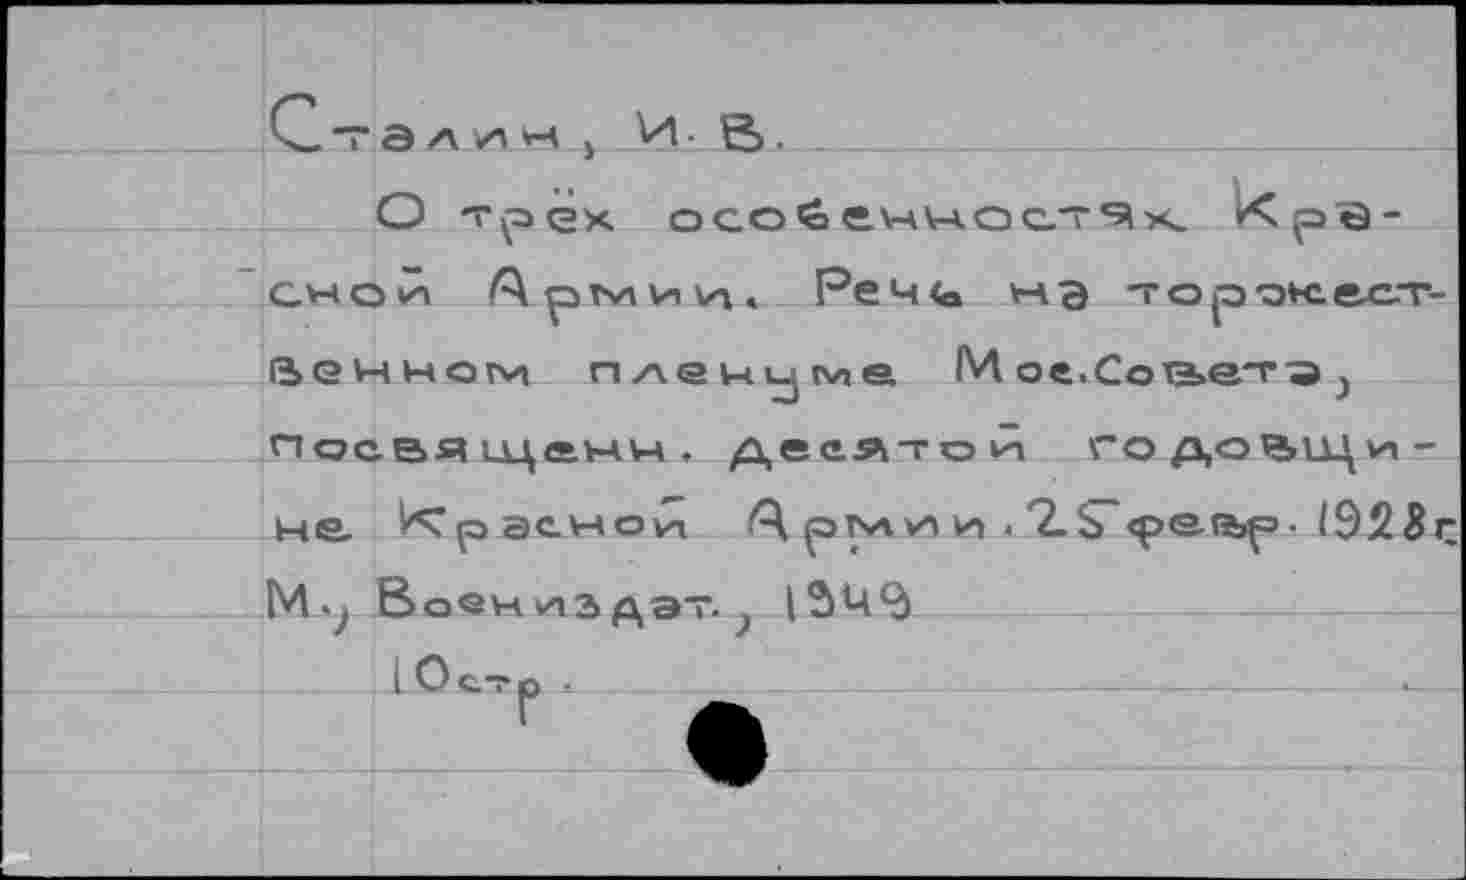 Сталин, И. В.
О трёх особенностях Кра-
сной Армии. Речь на торжест-
венном пленуме Мос.Совета,
посвящённ. десятой годовщи-
не Красной Армии. 25 февр. 1928г.
М., Воениздат., 1949
10стр.